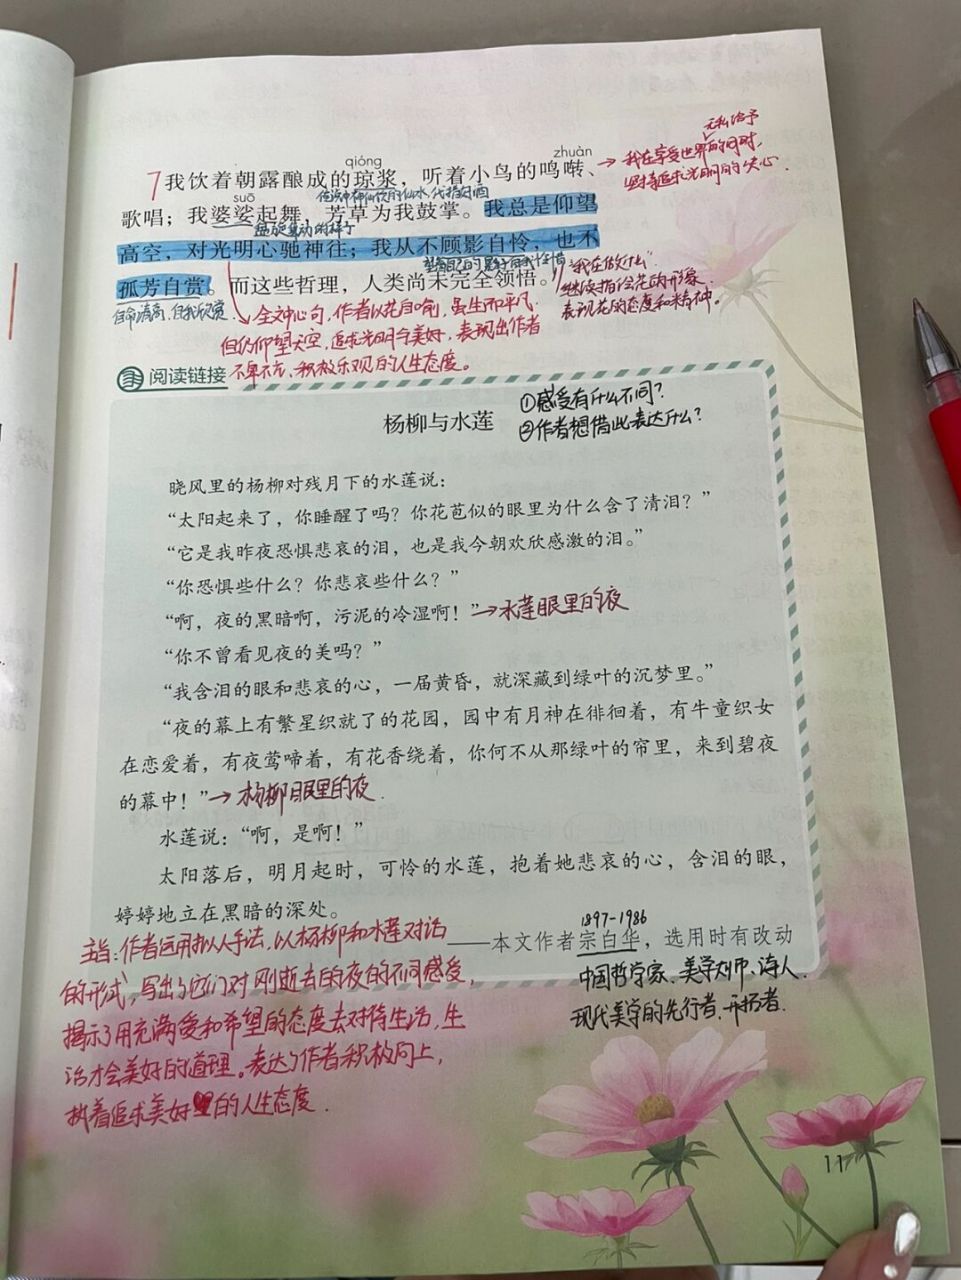 无私给予
qióng zhuàn
7我饮着朝露酿成的琼浆，听着小鸟的鸣啭、
→我在享受世界的同时，
坚持追求光明的决心
传说中神仙饮的仙水，代指好酒
suō
歌唱；我婆娑起舞，芳草为我鼓掌。我总是仰望
盘旋舞动的样子
高空，对光明心驰神往；我从不顾影自怜，也不
望着自己的影子自我怜惜
孤芳自赏。而这些哲理，人类尚未完全领悟。
自命清高，自我欣赏
"我在做什么"
继续描绘花的形象，
表现花的态度和精神。
全文中心句，作者以花自喻，虽生而平凡，
但仍仰望天空，追求光明与美好，表现出作者
不卑不亢、积极乐观的人生态度。
阅读链接
杨柳与水莲
①感受有什么不同？
②作者想借此表达什么？
晓风里的杨柳对残月下的水莲说：
“太阳起来了，你睡醒了吗？你花苞似的眼里为什么含了清泪？”
“它是我昨夜恐惧悲哀的泪，也是我今朝欢欣感激的泪。”
“你恐惧些什么？你悲哀些什么？”
“啊，夜的黑暗啊，污泥的冷湿啊！”→水莲眼里的夜
“你不曾看见夜的美吗？”
“我含泪的眼和悲哀的心，一届黄昏，就深藏到绿叶的沉梦里。”
“夜的幕上有繁星织就了的花园，园中有月神在徘徊着，有牛童织女
在恋爱着，有夜莺啼着，有花香绕着，你何不从那绿叶的帘里，来到碧夜
的幕中！”→杨柳眼里的夜.
水莲说：“啊，是啊！”
太阳落后，明月起时，可怜的水莲，抱着她悲哀的心，含泪的眼，
婷婷地立在黑暗的深处。
1897-1986
——本文作者宗白华，选用时有改动
中国哲学家、美学大师、诗人.
现代美学的先行者、开拓者.
主旨：作者运用拟人手法，以杨柳和水莲对话
的形式，写出了它们对刚逝去的夜的不同感受，
揭示了用充满爱和希望的态度去对待生活，生
活才会美好的道理。表达了作者积极向上，
执着追求美好的人生态度.
11